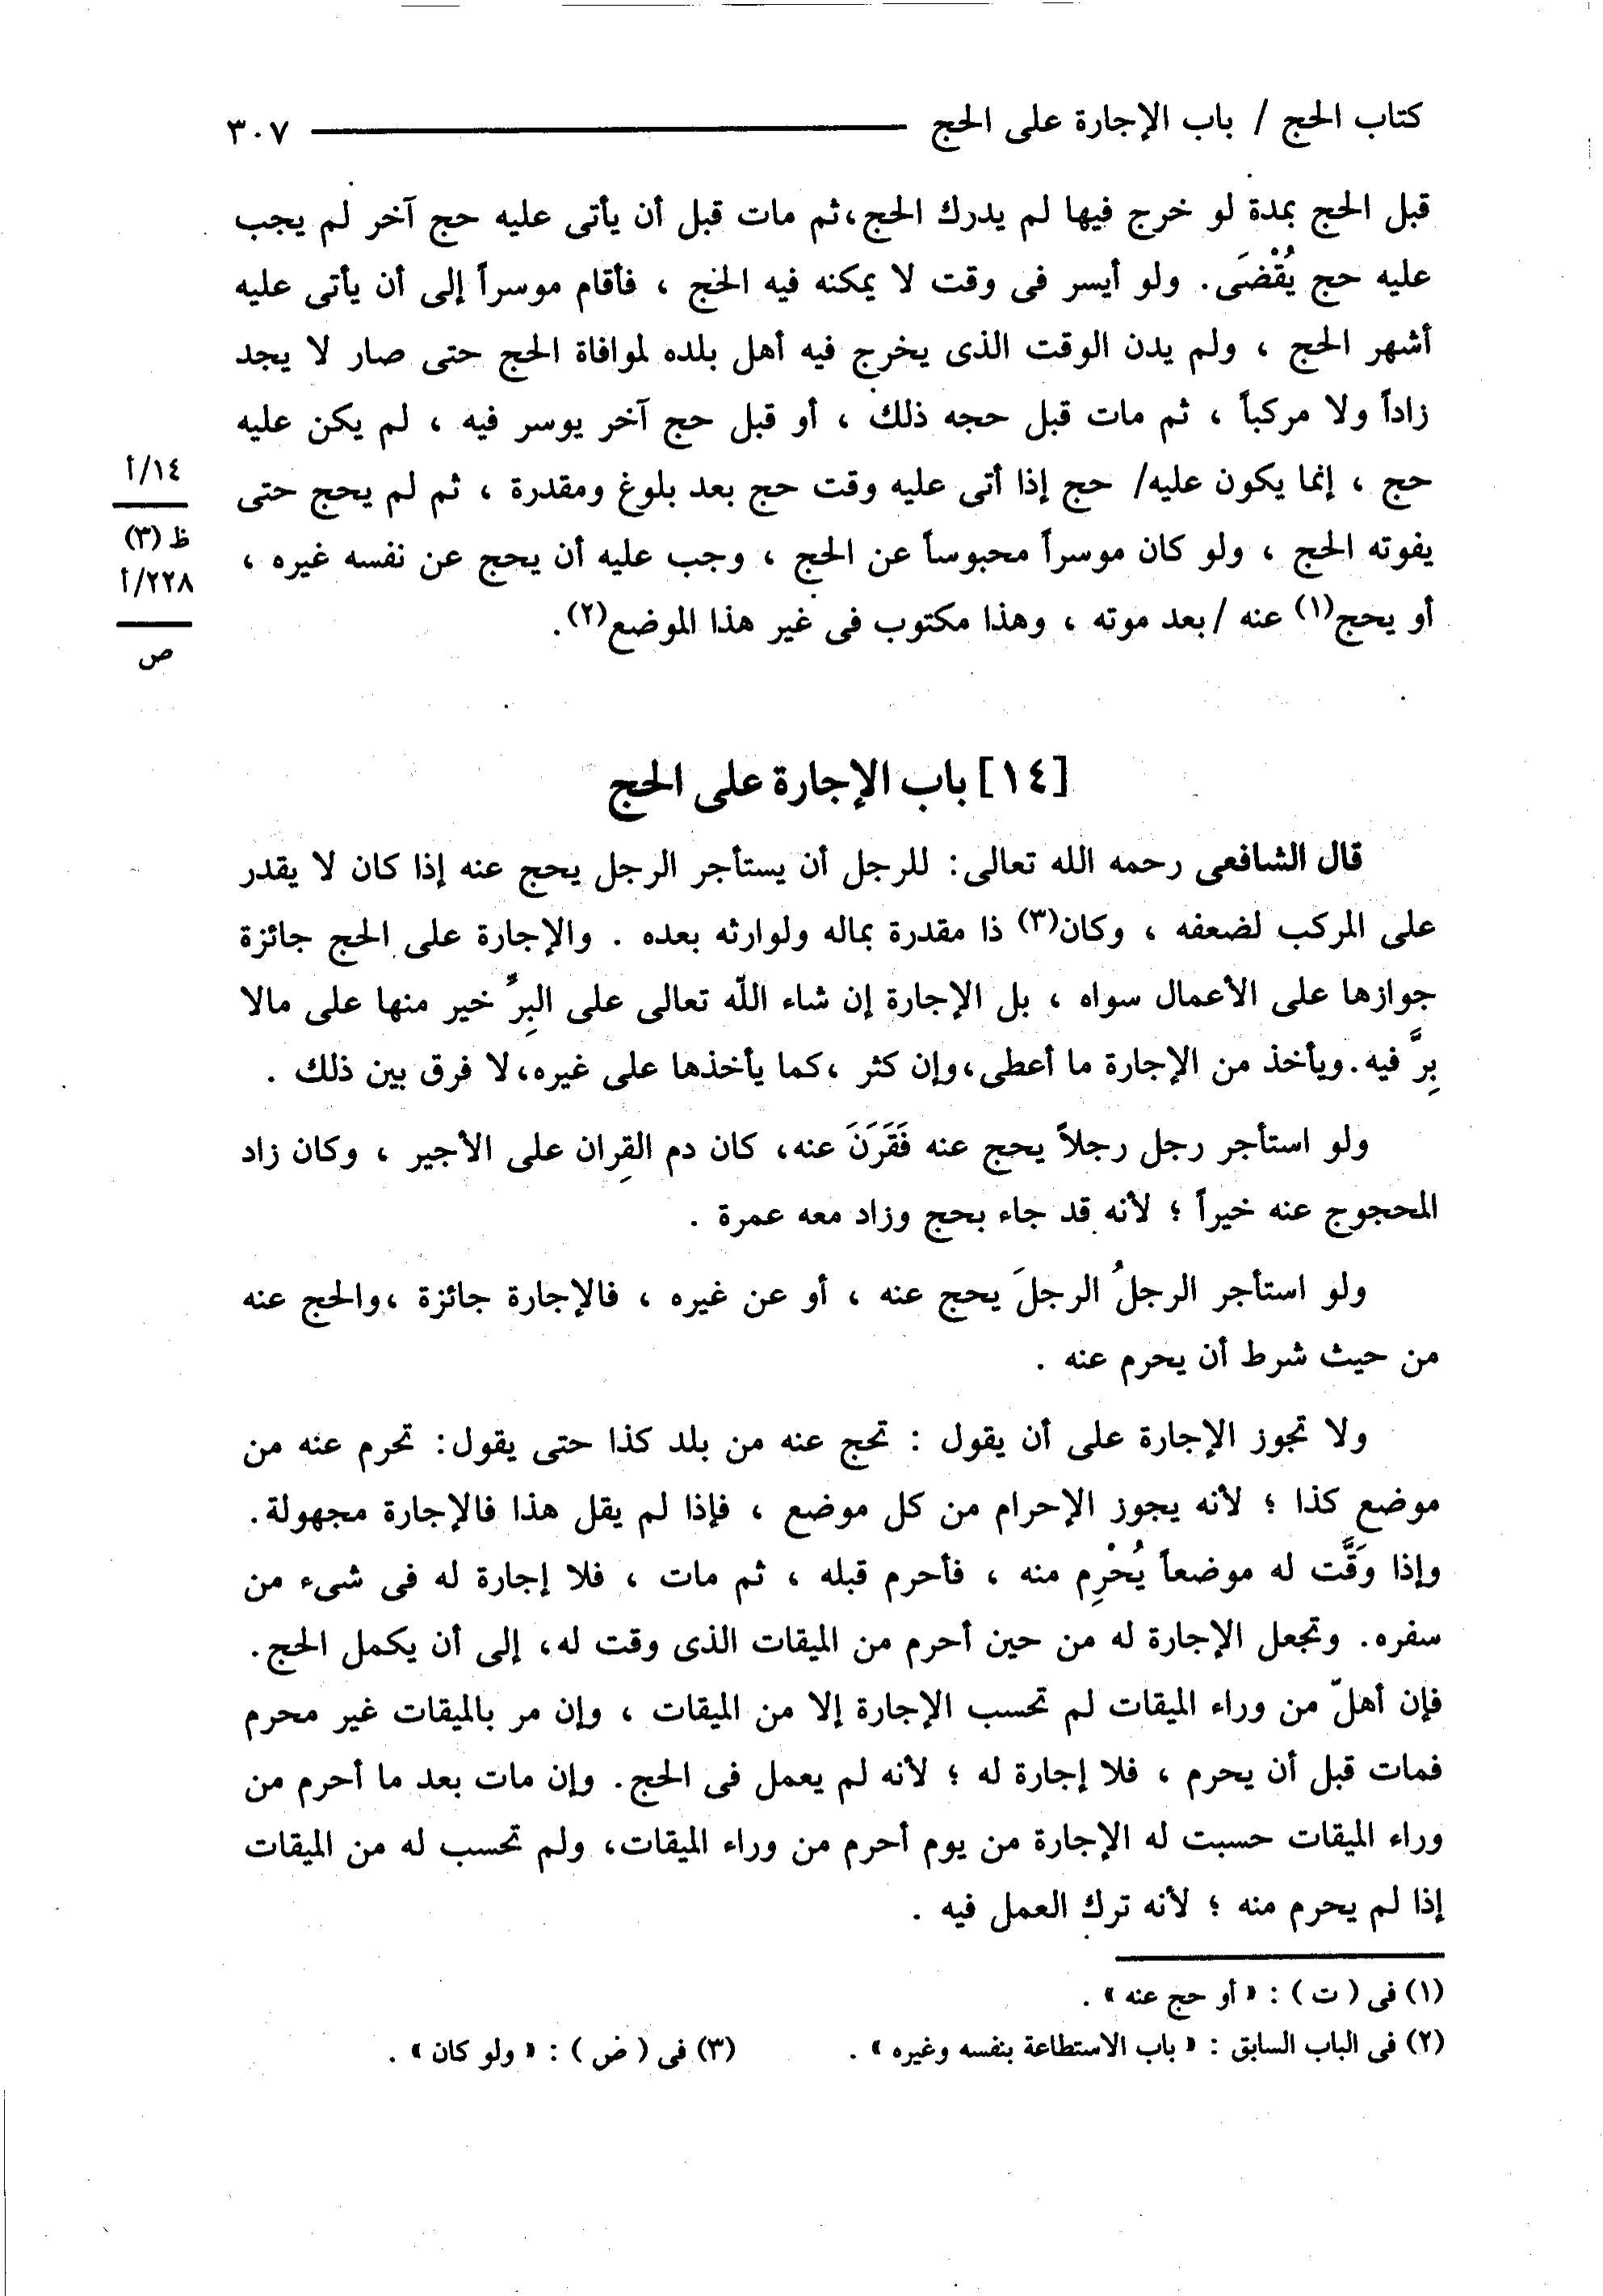 كتاب الحج / باب الإجارة على الحج ٣٠٧
قبل الحج بمدة لو خرج فيها لم يدرك الحج، ثم مات قبل أن يأتى عليه حج آخر لم يجب
عليه حج يُقْضَى. ولو أيسر فى وقت لا يمكنه فيه الحج ، فأقام موسراً إلى أن يأتى عليه
أشهر الحج ، ولم يدن الوقت الذى يخرج فيه أهل بلده لموافاة الحج حتى صار لا يجد
زاداً ولا مركباً ، ثم مات قبل حجه ذلك ، أو قبل حج آخر يوسر فيه ، لم يكن عليه
حج ، إنما يكون عليه/ حج إذا أتى عليه وقت حج بعد بلوغ ومقدرة ، ثم لم يحج حتى
يفوته الحج ، ولو كان موسراً محبوساً عن الحج ، وجب عليه أن يحج عن نفسه غيره ،
أو يحج(١) عنه /بعد موته ، وهذا مكتوب فى غير هذا الموضع(٢).
١٤/أ
ظ (٣)
٢٢٨/أ
ص
[١٤] باب الإجارة على الحج
قال الشافعى رحمه الله تعالى: للرجل أن يستأجر الرجل يحج عنه إذا كان لا يقدر
على المركب لضعفه ، وكان(٣) ذا مقدرة بماله ولوارثه بعده . والإجارة على الحج جائزة
جوازها على الأعمال سواه ، بل الإجارة إن شاء اللّه تعالى على البِرِّ خير منها على مالا
بِرَّ فيه. ويأخذ من الإجارة ما أعطى، وإن كثر ، كما يأخذها على غيره، لا فرق بين ذلك .
ولو استأجر رجل رجلاً يحج عنه فَقَرَنَ عنه، كان دم القِران على الأجير ، وكان زاد
المحجوج عنه خيراً ؛ لأنه قد جاء بحج وزاد معه عمرة .
ولو استأجر الرجلُ الرجلَ يحج عنه ، أو عن غيره ، فالإجارة جائزة ، والحج عنه
من حيث شرط أن يحرم عنه .
ولا تجوز الإجارة على أن يقول : تحج عنه من بلد كذا حتى يقول: تحرم عنه من
موضع كذا ؛ لأنه يجوز الإحرام من كل موضع ، فإذا لم يقل هذا فالإجارة مجهولة.
وإذا وَقَّت له موضعاً يُحْرِم منه ، فأحرم قبله ، ثم مات ، فلا إجارة له فى شىء من
سفره. وتجعل الإجارة له من حين أحرم من الميقات الذى وقت له، إلى أن يكمل الحج.
فإن أهلّ من وراء الميقات لم تحسب الإجارة إلا من الميقات ، وإن مر بالميقات غير محرم
فمات قبل أن يحرم ، فلا إجارة له ؛ لأنه لم يعمل فى الحج. وإن مات بعد ما أحرم من
وراء الميقات حسبت له الإجارة من يوم أحرم من وراء الميقات، ولم تحسب له من الميقات
إذا لم يحرم منه ؛ لأنه ترك العمل فيه .
(١) فى ( ت ) : « أو حج عنه » .
(٢) فى الباب السابق : « باب الاستطاعة بنفسه وغيره » . (٣) فى ( ض ) : « ولو كان » .